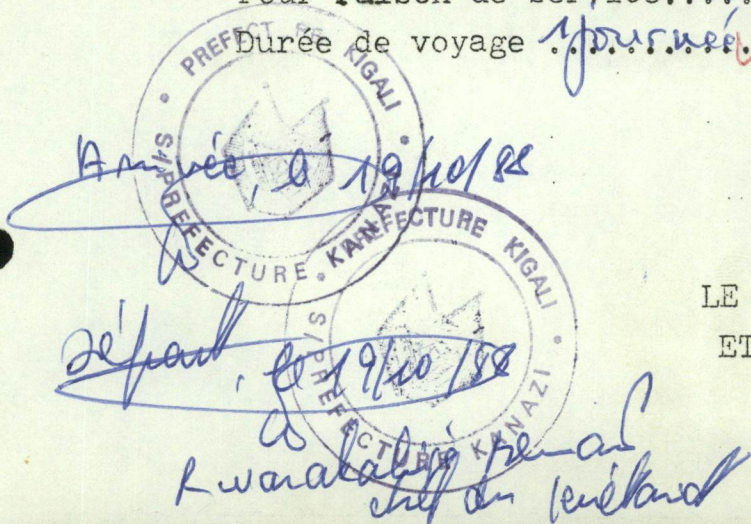 Pour raison de service.....
Durée de voyage 1 journée
PREFECT DE KIGALI
S/PREFECTURE KANAZI
Arrivée, le 19/10/88
PREFECTURE KIGALI
S/PREFECTURE KANAZI
LE
ET
départ, le 19/10/88
chef du